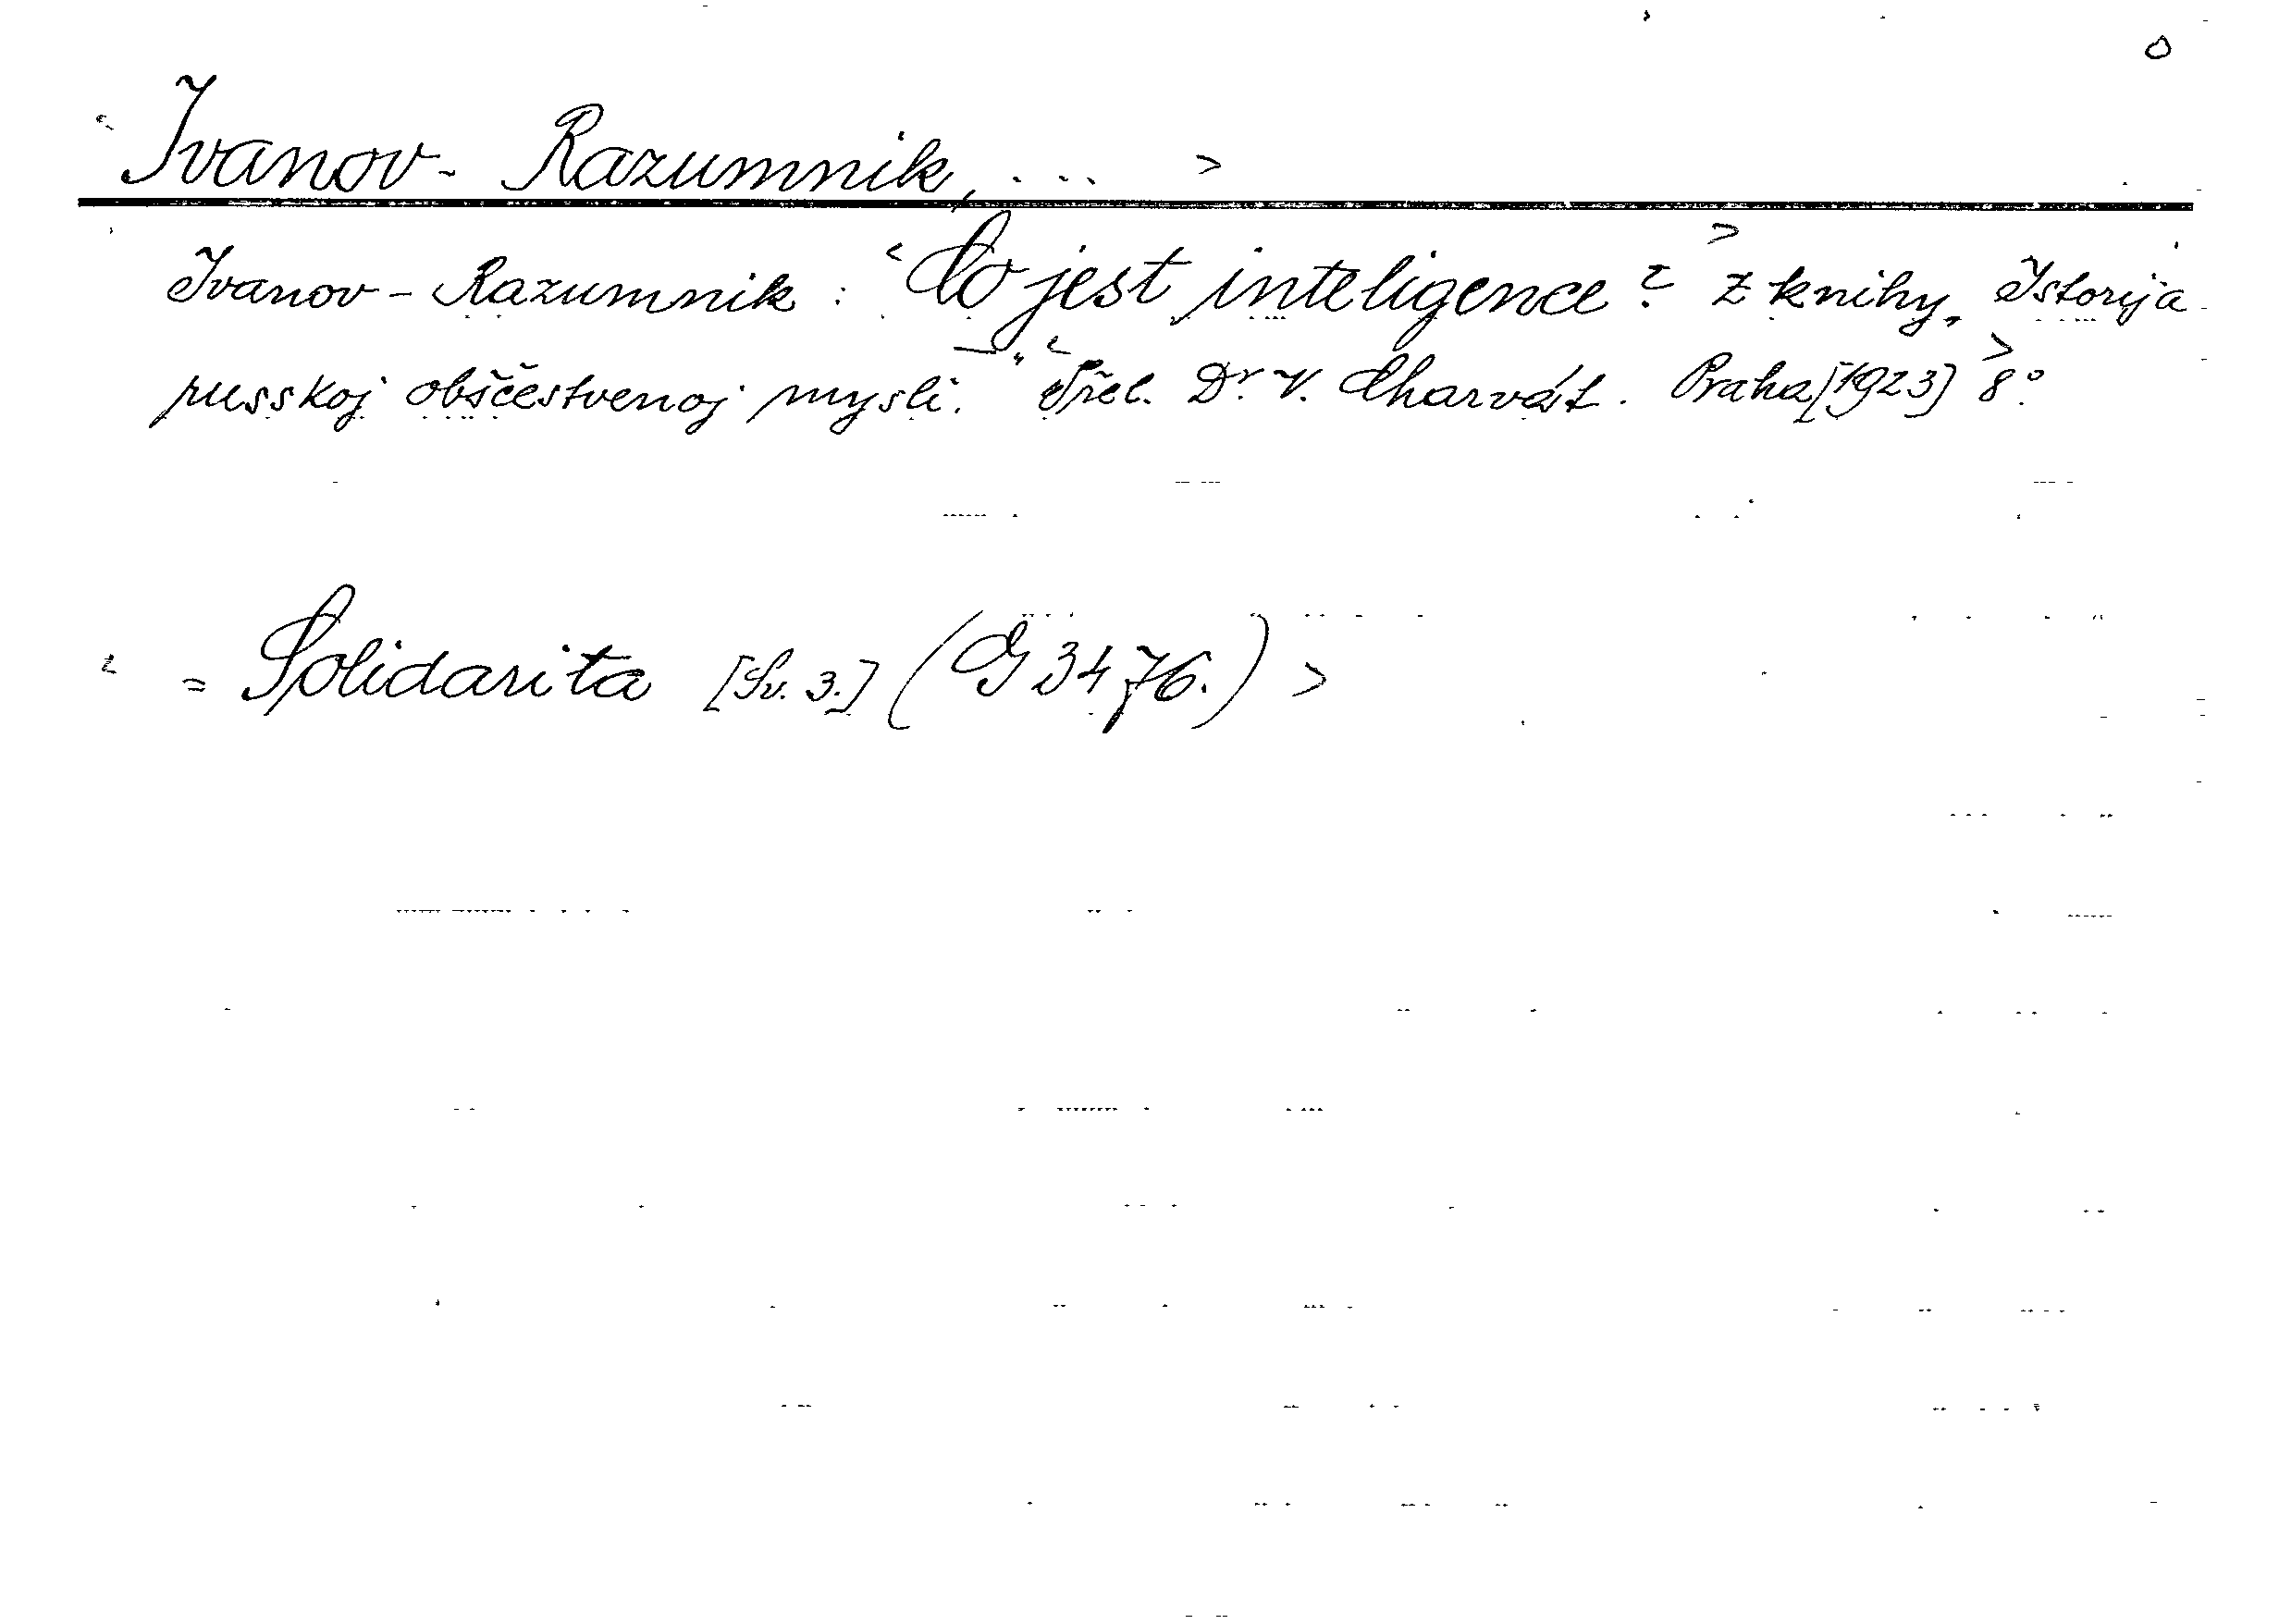 Ivanov - Razumnik, ...
Ivanov - Razumnik : Co jest inteligence? Z knihy „Istorija
russkoj obščestvenoj mysli.“ Přel. Dr. V. Charvát. Praha [1923] 8°.
= Solidarita [Sv. 3.] (G 3476.)